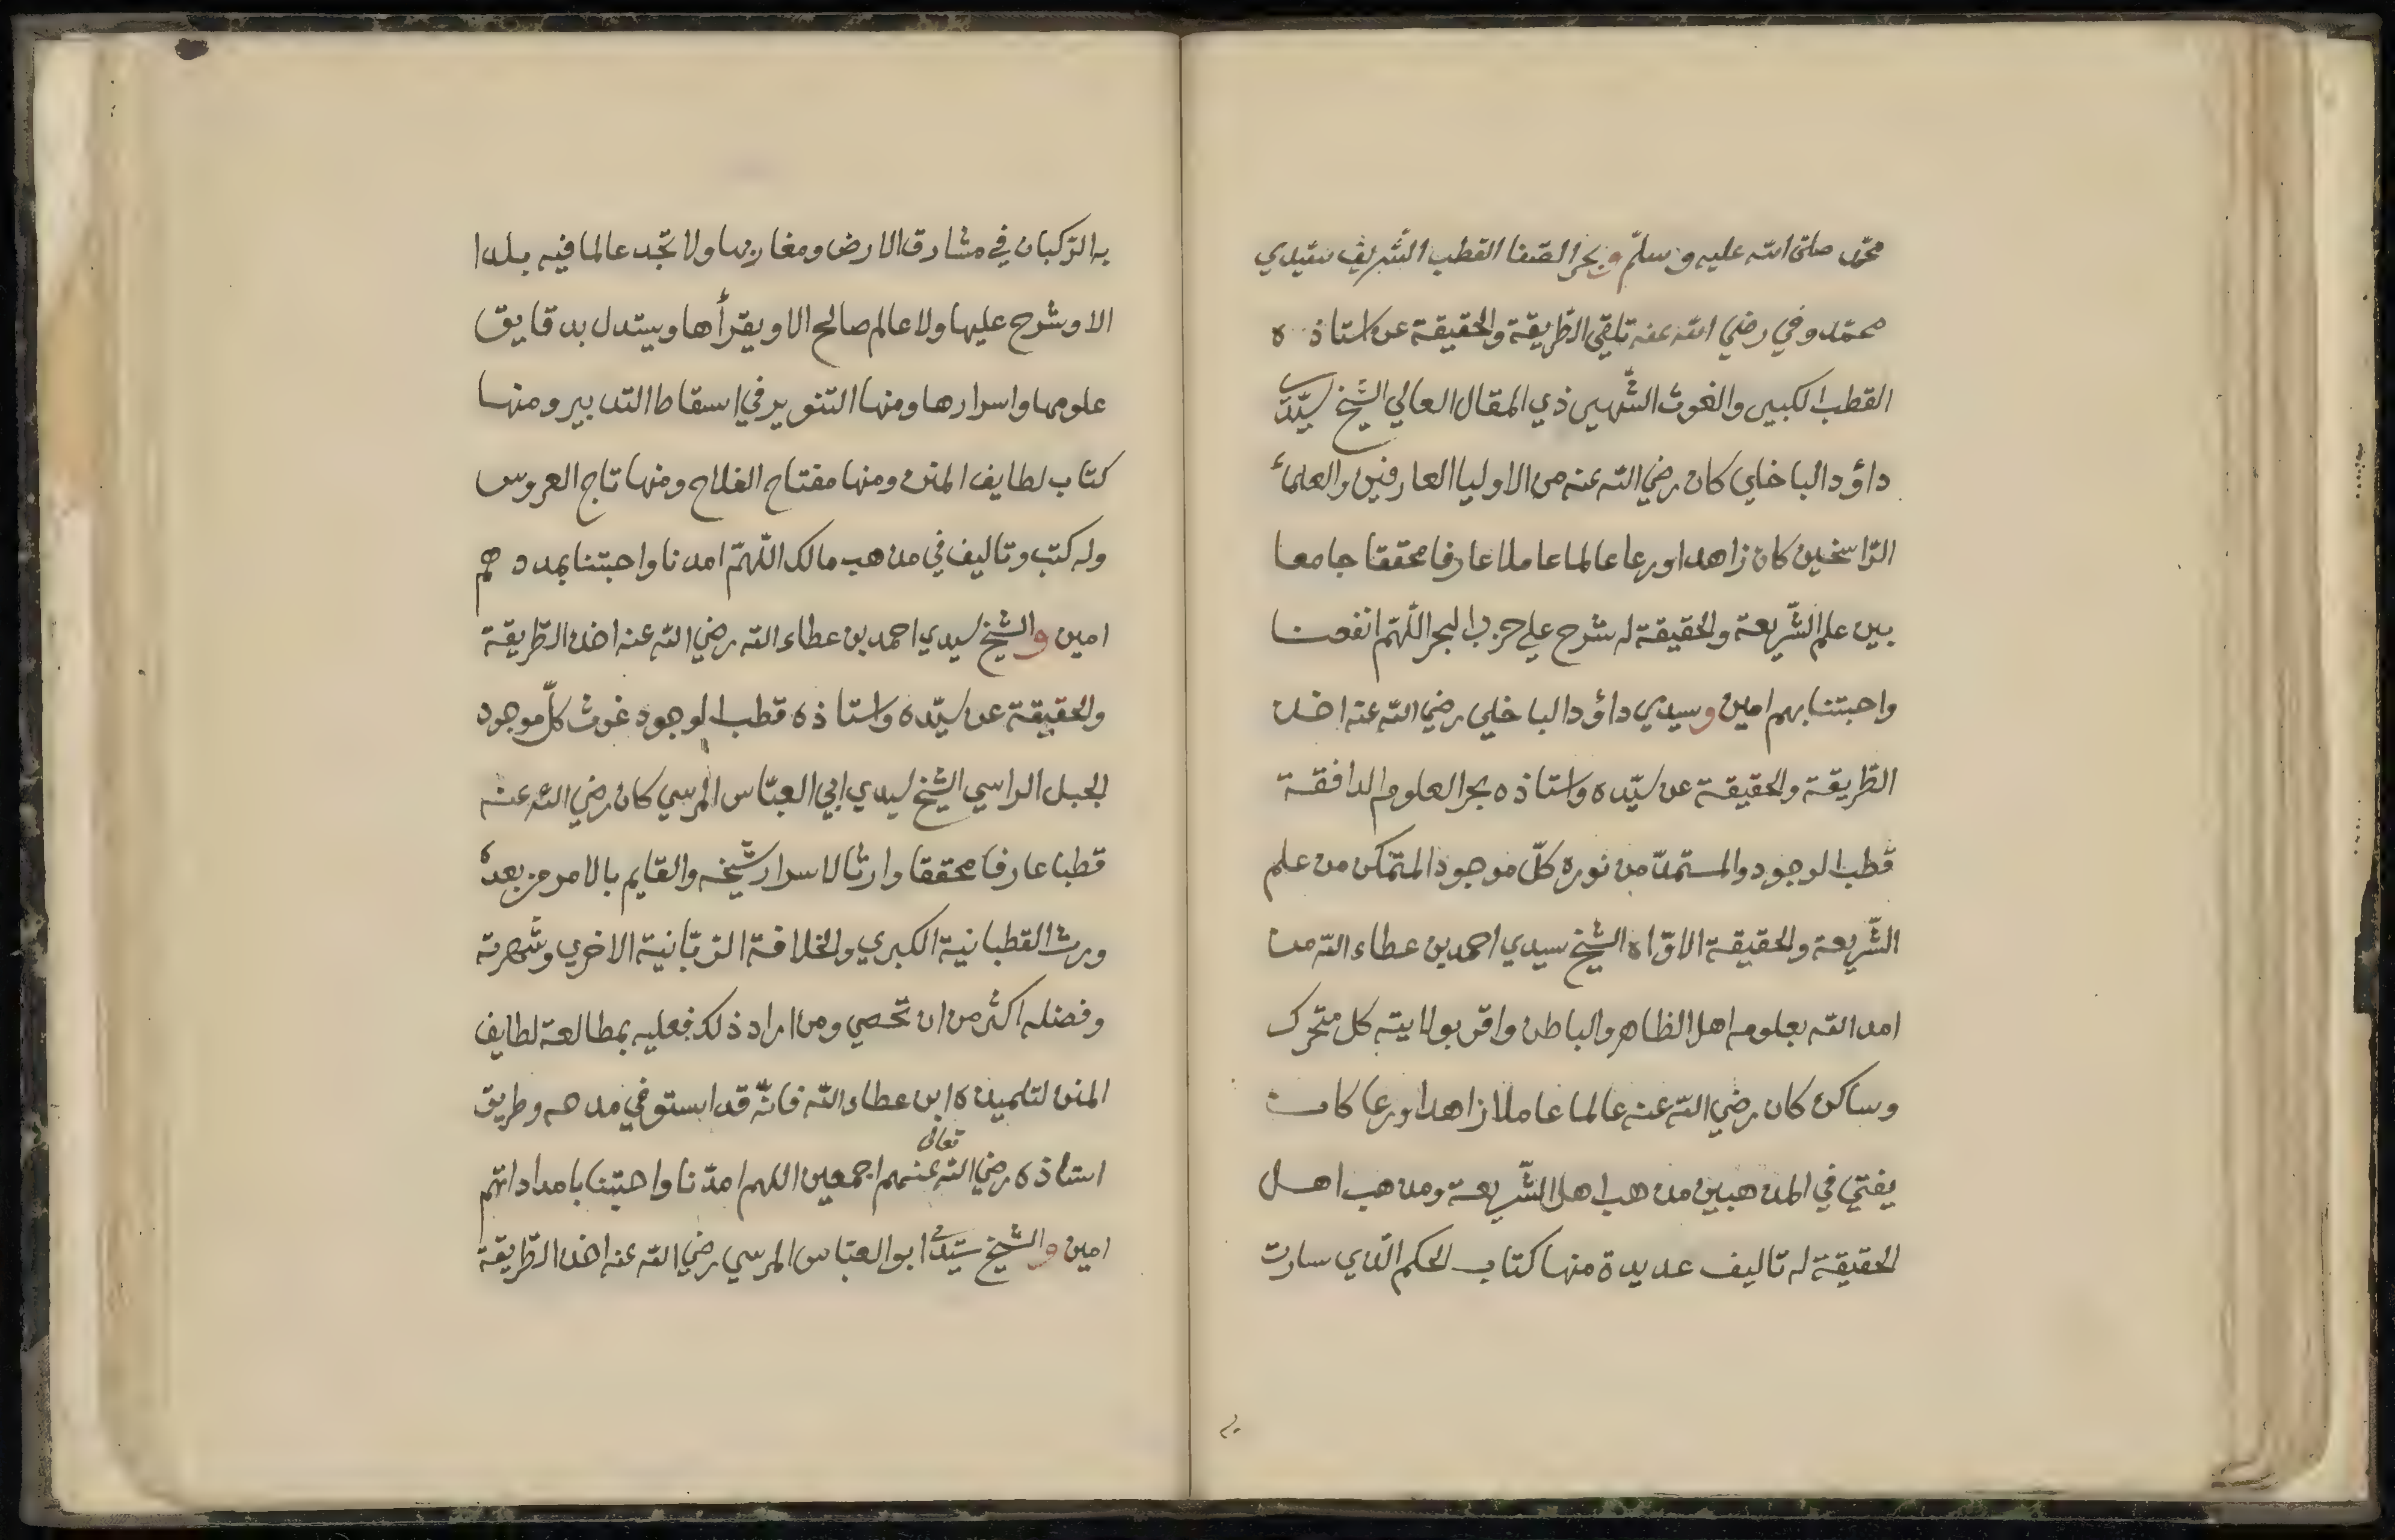 محمّد صلى الله عليه وسلمّ وبحر الصّفا القطب الشّريف سيّدي
محمّد وفي رضي الله عنه تلقي الطّريقة والحقيقة عن استاذه
القطب الكبير والغوث الشّهير ذي المقال العالي الشيخ سيّدي
داؤد الباخلي كان رضي الله عنه من الاوليا العارفين والعلمآء
الرّاسخين كان زاهدا ورعا عالما عاملا عارفا محققا جامعا
بين علم الشّريعة والحقيقة له شرح علي حزب البحر اللّهمّ انفعنا
واحبتنا بهم امين وسيدي داؤد الباخلي رضي الله عنه اخذ
الطّريقة والحقيقة عن سيّده واستاذه بحر العلوم الدافقة
قطب الوجود والمستمدّ من نوره كلّ موجود المتمكن من علم
الشّريعة والحقيقة الاوّاه الشيخ سيدي احمد بن عطاء الله من
امد الله بعلومه اهل الظاهر والباطن واقر بولايته كل متحرك
وساكن كان رضي الله عنه عالما عاملا زاهدا ورعا كان
يفتي في المذهبين مذهب اهل الشّريعة ومذهب اهل
الحقيقة له تاليف عديدة منها كتاب الحكم الّذي سارت
به الرّكبان في مشارق الارض ومغاربها ولا تجد عالما فيه بلدا
الا وشرح عليها ولا عالم صالح الا ويقرأها ويستدل بدقايق
علومها واسرارها ومنها التنوير في اسقاط التدبير ومنها
كتاب لطايف المنن ومنها مفتاح الفلاح ومنها تاج العروس
وله كتب وتاليف في مذهب مالك اللّهمّ امدنا واحبتنا بمددهم
امين والشيخ سيدي احمد بن عطاء الله رضي الله عنه اخذ الطّريقة
والحقيقة عن سيّده واستاذه قطب الوجود غوث كلّ موجود
الجبل الراسي الشيخ سيدي ابي العبّاس المرسي كان رضي الله عنه
قطبا عارفا محققا وارثا لاسرار شيخه والقايم بالامر من بعده
ورث القطبانية الكبري والخلافة الرّبّانية الاخري وشهرته
وفضله اكثر من ان تحصي ومن اراد ذلك فعليه بمطالعة لطايف
المنن لتلميذه ابن عطاء الله فانّه قد استوفي مذهبه وطريق
استاذه رضي الله تعالى عنهم اجمعين اللهم امدّنا واحبّتنا بامداداتهم
امين والشيخ سيّدي ابو العبّاس المرسي رضي الله عنه اخذ الطّريقة